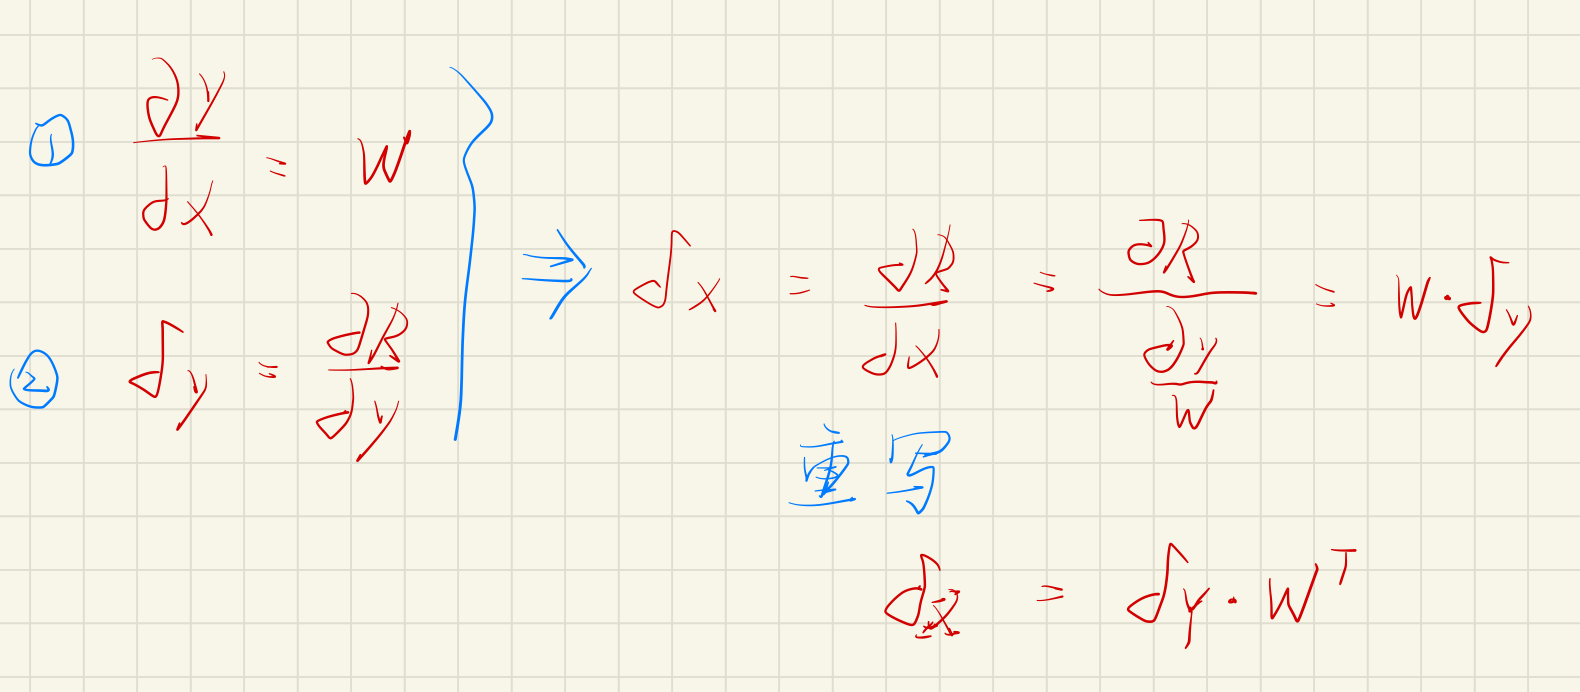 ① ∂y/∂x = W
② δy = ∂R/∂y
⇒ δx = ∂R/∂x = ∂R/(∂y/W) = W·δy
重写
δx = δy·W^T